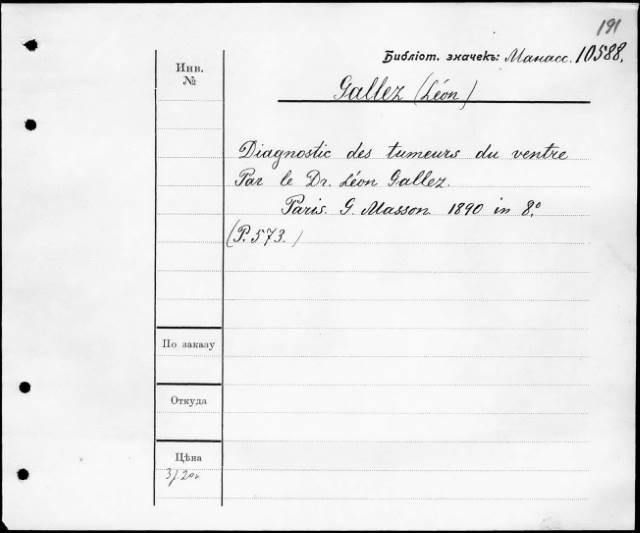 191
Библіот. значекъ: Манасс. 10588.
Инв.
№
Gallez (Léon)
Diagnostic des tumeurs du ventre
Par le Dr. Léon Gallez.
Paris. G. Masson. 1890 in 8°.
(P. 573.)
По заказу
Откуда
Цѣна